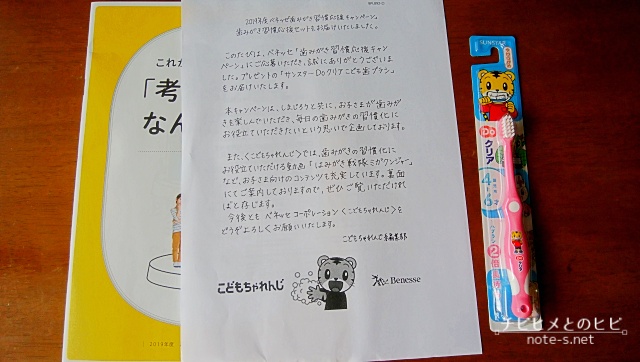 2019年度 ベネッセ歯みがき習慣応援キャンペーン。
歯みがき習慣応援セットをお届けいたしました。
このたびは、ベネッセ「歯みがき習慣応援キャン
ペーン」にご応募いただき、誠にありがとうございま
した。プレゼントの「サンスターDoクリアこども歯ブラシ」
をお届けいたします。
本キャンペーンは、しまじろうと共に、お子さまが歯みが
きを楽しんでいただき、毎日の歯みがきの習慣化に
お役立ていただきたいという思いで企画しております。
また、〈こどもちゃれんじ〉では、歯みがきの習慣化に
お役立ていただける動画「はみがき戦隊ミガクンジャー」
など、お子さま向けのコンテンツも充実しています。裏面
にてご案内しておりますので、ぜひご覧いただけれ
ばと存じます。
今後とも ベネッセコーポレーション〈こどもちゃれんじ〉を
どうぞよろしくお願いいたします。
こどもちゃれんじ編集部
こどもちゃれんじ
Benesse
これか
「考
なん
2019年度
SUNSTAR
Do
クリア
4
6才
2倍
チビヒメとのヒビ
note-s.net